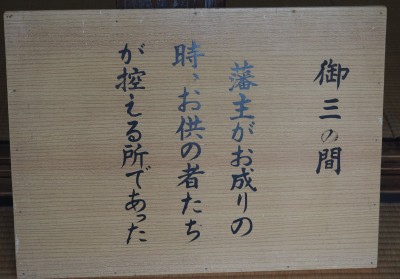 御三の間
藩主がお成りの
時、お供の者たち
が控える所であった